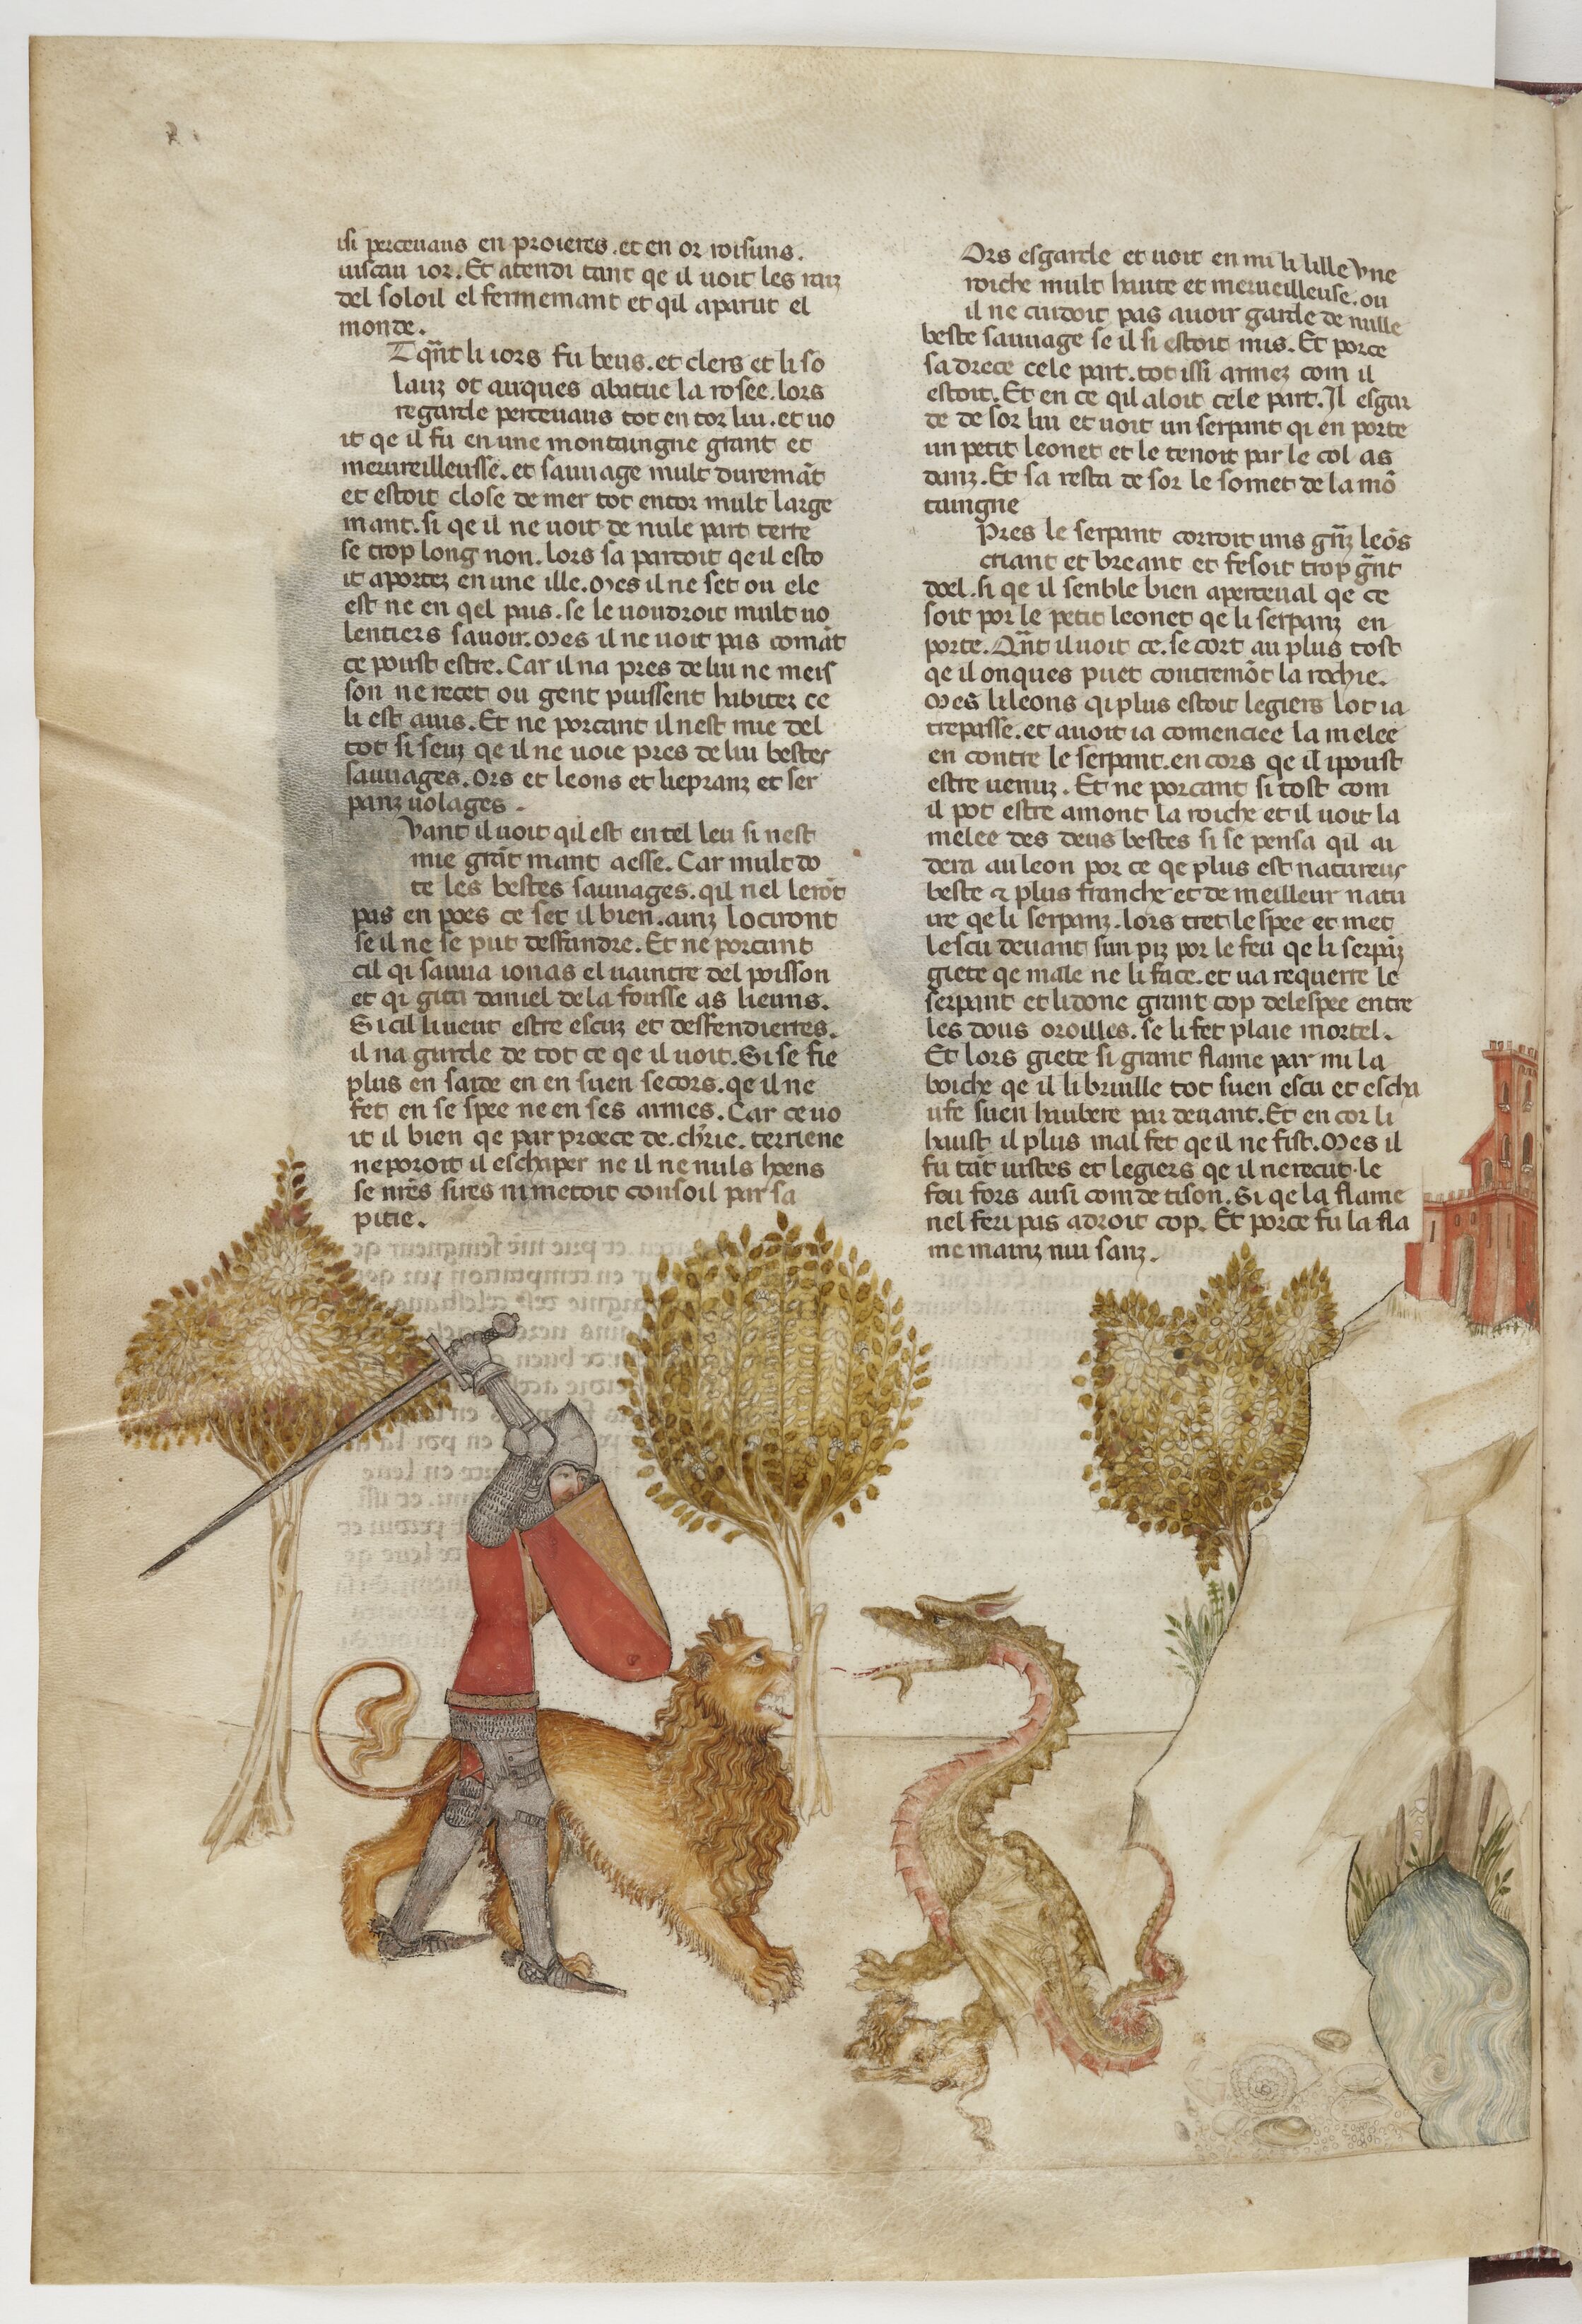 isi percevaus en proieres. et en or roisuns.
iuscau ior. Et atendi tant qe il uoit les raiz
del soloil el fermemant et qil aparut el
monde.
T qñt li iors fu beus. et clers et li so
lauz ot auques abatue la rosee. lors
regarde percevaus tot en tor lui. et uo
it qe il fu en une montaingne grant et
merureilleusse. et sauuage mult duremãt
et estoit close de mer tot entor mult large
mant. si qe il ne uoit de nule part terre
se trop long non. lors sa parcoit qe il esto
it aportez en une ille. Mes il ne set ou ele
est ne en qel pais. se le uoudroit mult uo
lentiers sauoir. Mes il ne uoit pas comãt
ce poust estre. Car il na pres de lui ne meis
son ne recet ou gent puissent habiter ce
li est auis. Et ne porcant il nest mie del
tot si seuz qe il ne uoie pres de lui bestes
sauuages. Ors et leons et liepranz et ser
panz uolages.
Vant il uoit qil est en tel leu si nest
mie grãt mant aesse. Car mult do
te les bestes sauuages. qil nel lerõt
pas en poes ce set il bien. ainz lociront
se il ne se put deffandre. Et ne porcant
cil qi sauua ionas el uaintre del poisson
et qi gita daniel de la fousse as lieuns.
Si cil li ueut estre escuz et deffendierres.
il na garde de tot ce qe il uoit. Si se fie
plus en sarde en en suen secors. qe il ne
fet en se spee ne en ses armes. Car ce uo
it il bien qe par proece de. ch'rie. terriene
ne poroit il eschaper ne il ne nuls hoens
se nrẽs sires ni metoit consoil par sa
pitie.
Ors esgarde et uoit en mi li lille vne
roiche mult haute et merueilleuse. ou
il ne cuidoit pas auoir garde de nulle
beste sauuage se il si estoit mis. Et porce
sa drece cele part. tot issi armez com il
estoit. Et en ce qil aloit cele part. Il esgar
de de sor lui et uoit un serpant qi en porte
un petit leonet et le tenoit par le col as
danz. Et sa resta de sor le somet de la mõ
taingne
Pres le serpant corroit uns grãz leõs
criant et breant et fesoit trop grãt
doel. si qe il senble bien aperceual qe ce
soit por le petit leonet qe li serpanz en
porte. Qãnt il uoit ce. se cort au plus tost
qe il onques puet contremõt la rochie.
Mes li leons qi plus estoit legiers lot ia
trepasse. et auoit ia comenciee la melee
en contre le serpant. en cors qe il i poust
estre uenuz. Et ne porcant si tost com
il pot estre amont la roiche et il uoit la
melee des deus bestes si se pensa qil ai
dera au leon por ce qe plus est natureus
beste & plus franche et de meilleur natu
ure qe li serpanz. lors tret lespee et met
lescu deuant sun piz por le feu qe li serpãz
giete qe male ne li face. et ua requerre le
serpant et li done grant cop delespee entre
les dous oroilles. se li fet plaie mortel.
Et lors giete si grant flame par mi la
boiche qe il li bruille tot suen escu et escha
ufe suen hauberc par deuant. Et en cor li
haust il plus mal fet qe il ne fist. Mes il
fu tãt uistes et legiers qe il ne recut le
feu fors ausi com de tison. Si qe la flame
nel feri pas a droit cop. Et porce fu la fla
me mainz nui sanz.